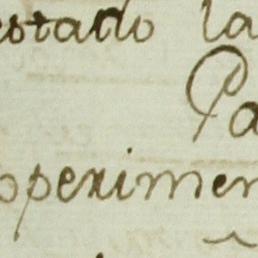 estado la
Pa
operimen